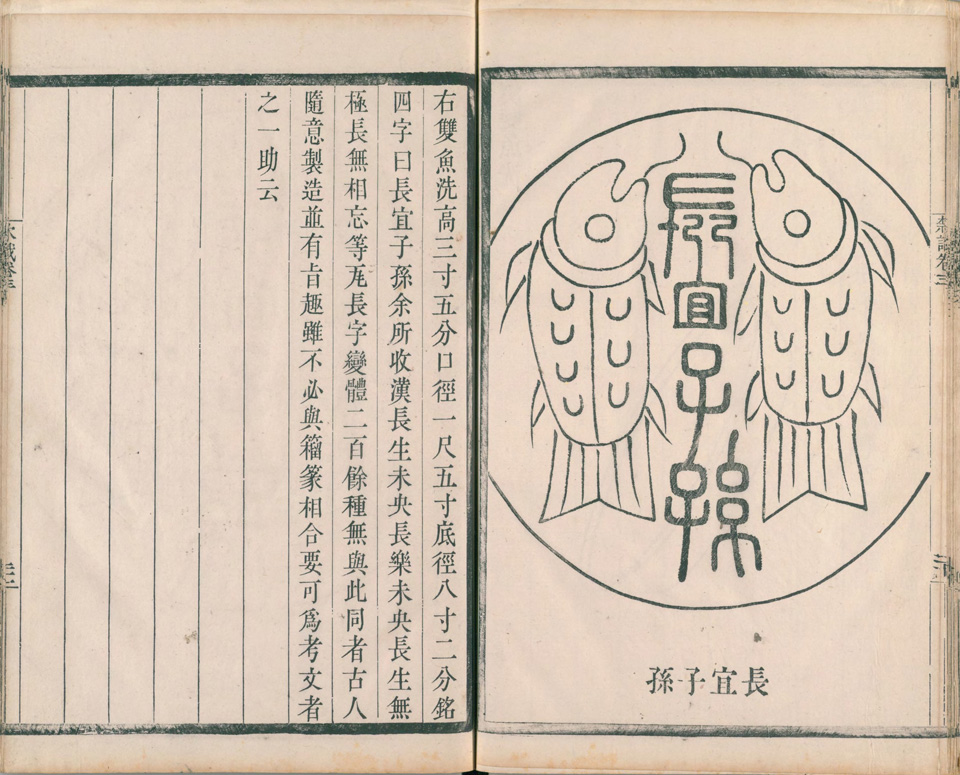 長宜子孫
長宜子孫
右雙魚洗高三寸五分口徑一尺五寸底徑八寸二分銘
四字曰長宜子孫余所收漢長生未央長樂未央長生無
極長無相忘等瓦長字變體二百餘種無與此同者古人
隨意製造並有旨趣雖不必與籀篆相合要可為考文者
之一助云